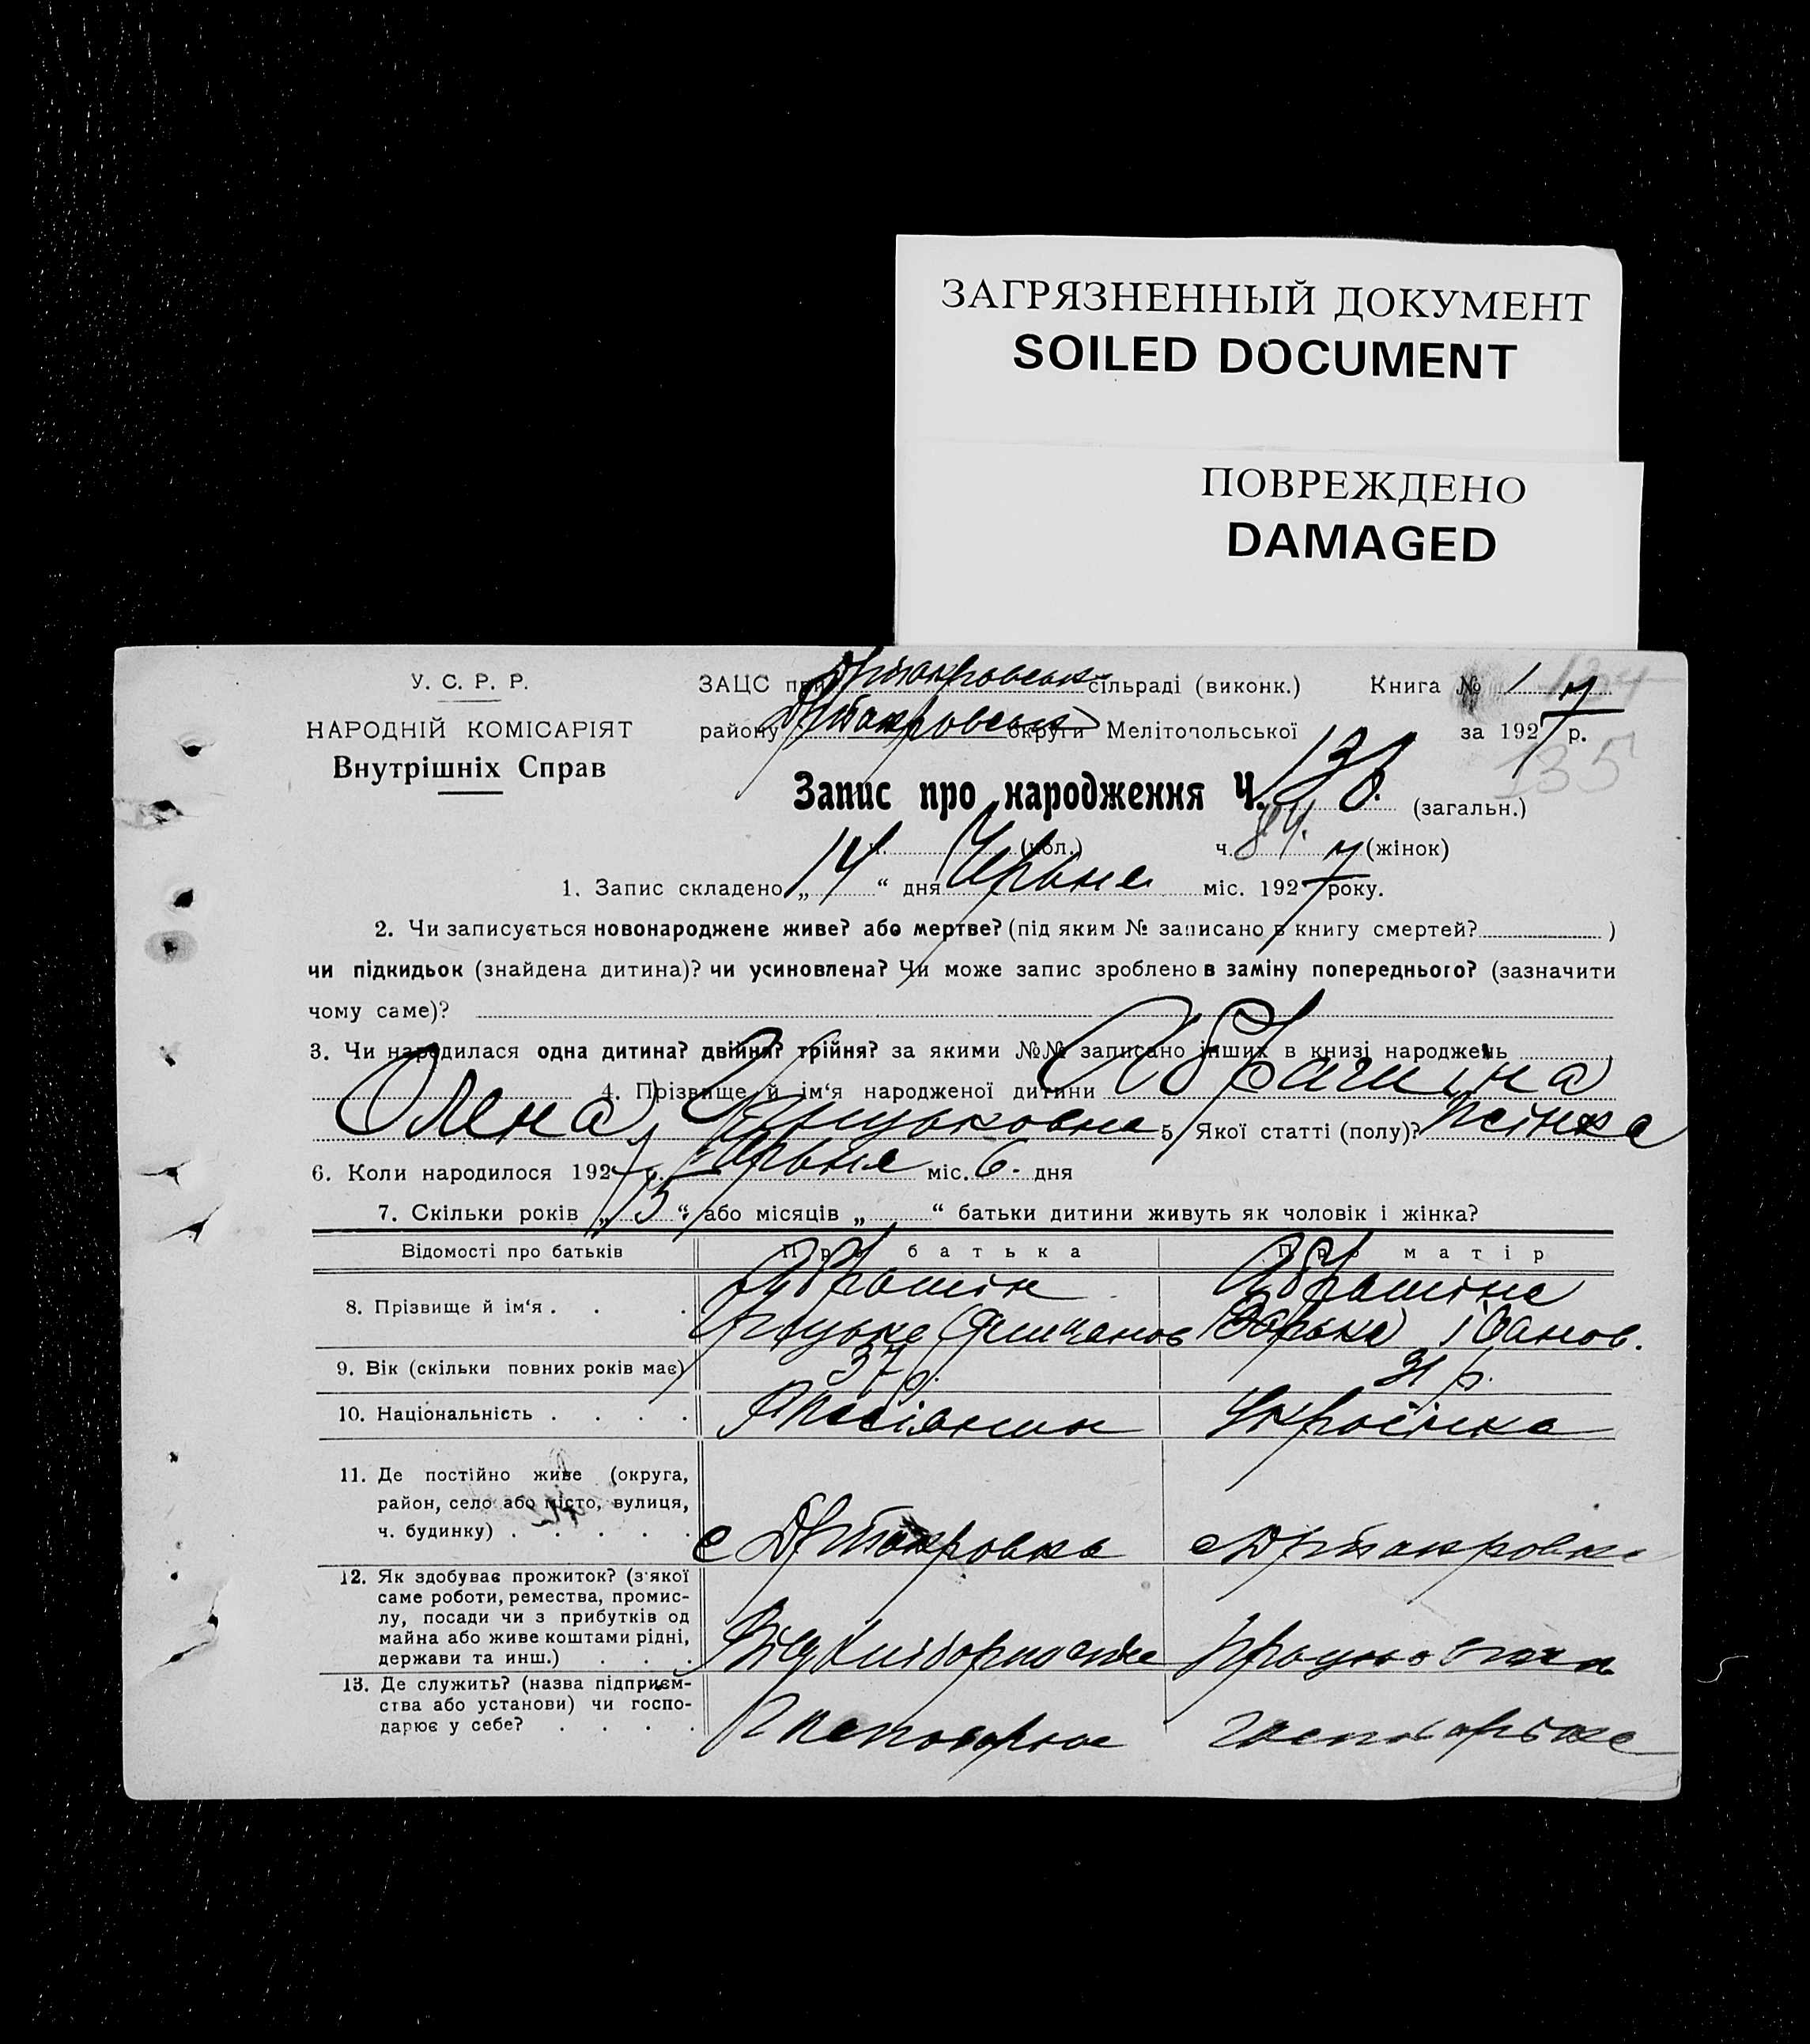 ЗАГРЯЗНЕННЫЙ ДОКУМЕНТ
SOILED DOCUMENT
ПОВРЕЖДЕНО
DAMAGED
У. С. Р. Р.
НАРОДНІЙ КОМІСАРІЯТ
Внутрішніх Справ
ЗАЦС при сільраді (виконк.) Книга № 1 134
району округи Мелітопольської за 1927 р.
135
Запис про народження Ч. 138. (загальн.)
ч. (чол.) ч. 84. (жінок)
1. Запис складено „ 14 “ дня Червня міс. 1927 року.
2. Чи записується новонароджене живе? або мертве? (під яким № записано в книгу смертей? )
чи підкидьок (знайдена дитина)? чи усиновлена? Чи може запис зроблено в заміну попереднього? (зазначити
чому саме)?
3. Чи народилася одна дитина? двійня? трійня? за якими №№ записано інших в книзі народжень
4. Прізвище й ім‘я народженої дитини
Олена 5. Якої статті (полу)? жінка
6. Коли народилося 1927 р. Червня міс. 6 - дня
7. Скільки років „ 15 “ або місяців „ “ батьки дитини живуть як чоловік і жінка?
Відомості про батьків Про батька Про матір
8. Прізвище й ім‘я . . . Абрашін Абрашіна
Іванов.
9. Вік (скільки повних років має) 37 р. 31 р.
10. Національність . . . . Росіянин Українка
11. Де постійно живе (округа,
район, село або місто, вулиця,
ч. будинку) . . . . . с с
12. Як здобуває прожиток? (з якої
саме роботи, ремества, промис-
лу, посади чи з прибутків од
майна або живе коштами рідні,
держави та инш.) . . .
13. Де служить? (назва підприєм-
ства або установи) чи госпо-
дарює у себе? . . . .